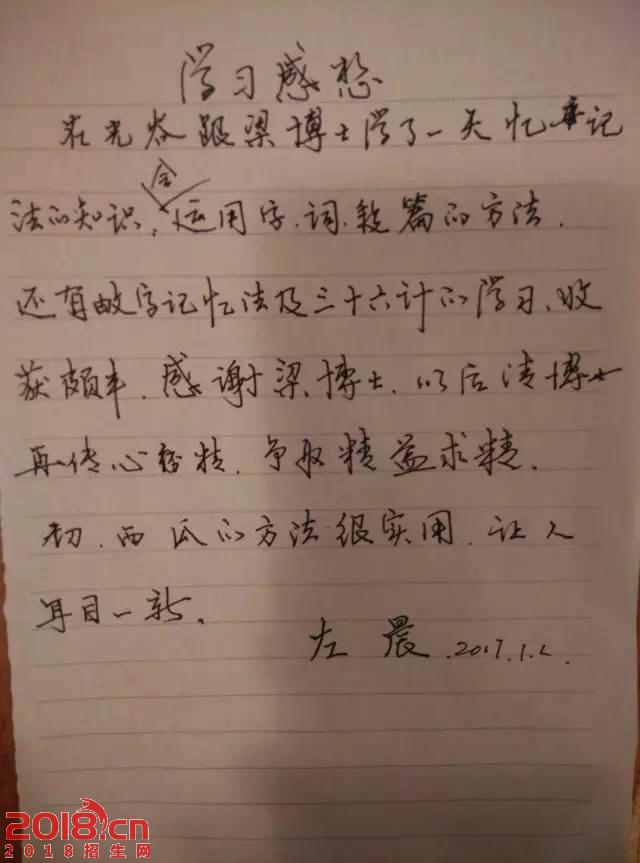 学习感想
在光谷跟梁博士学了一天忆记
法的知识,会运用字.词.段篇的方法.
还有故字记忆法及三十六计的学习.收
获颇丰.感谢梁博士.以后请博士
再传心 .争取精益求精.
切.西瓜的方法很实用.让人
耳目一新.
左晨.2017.1.2.
2018.cn
2018招生网